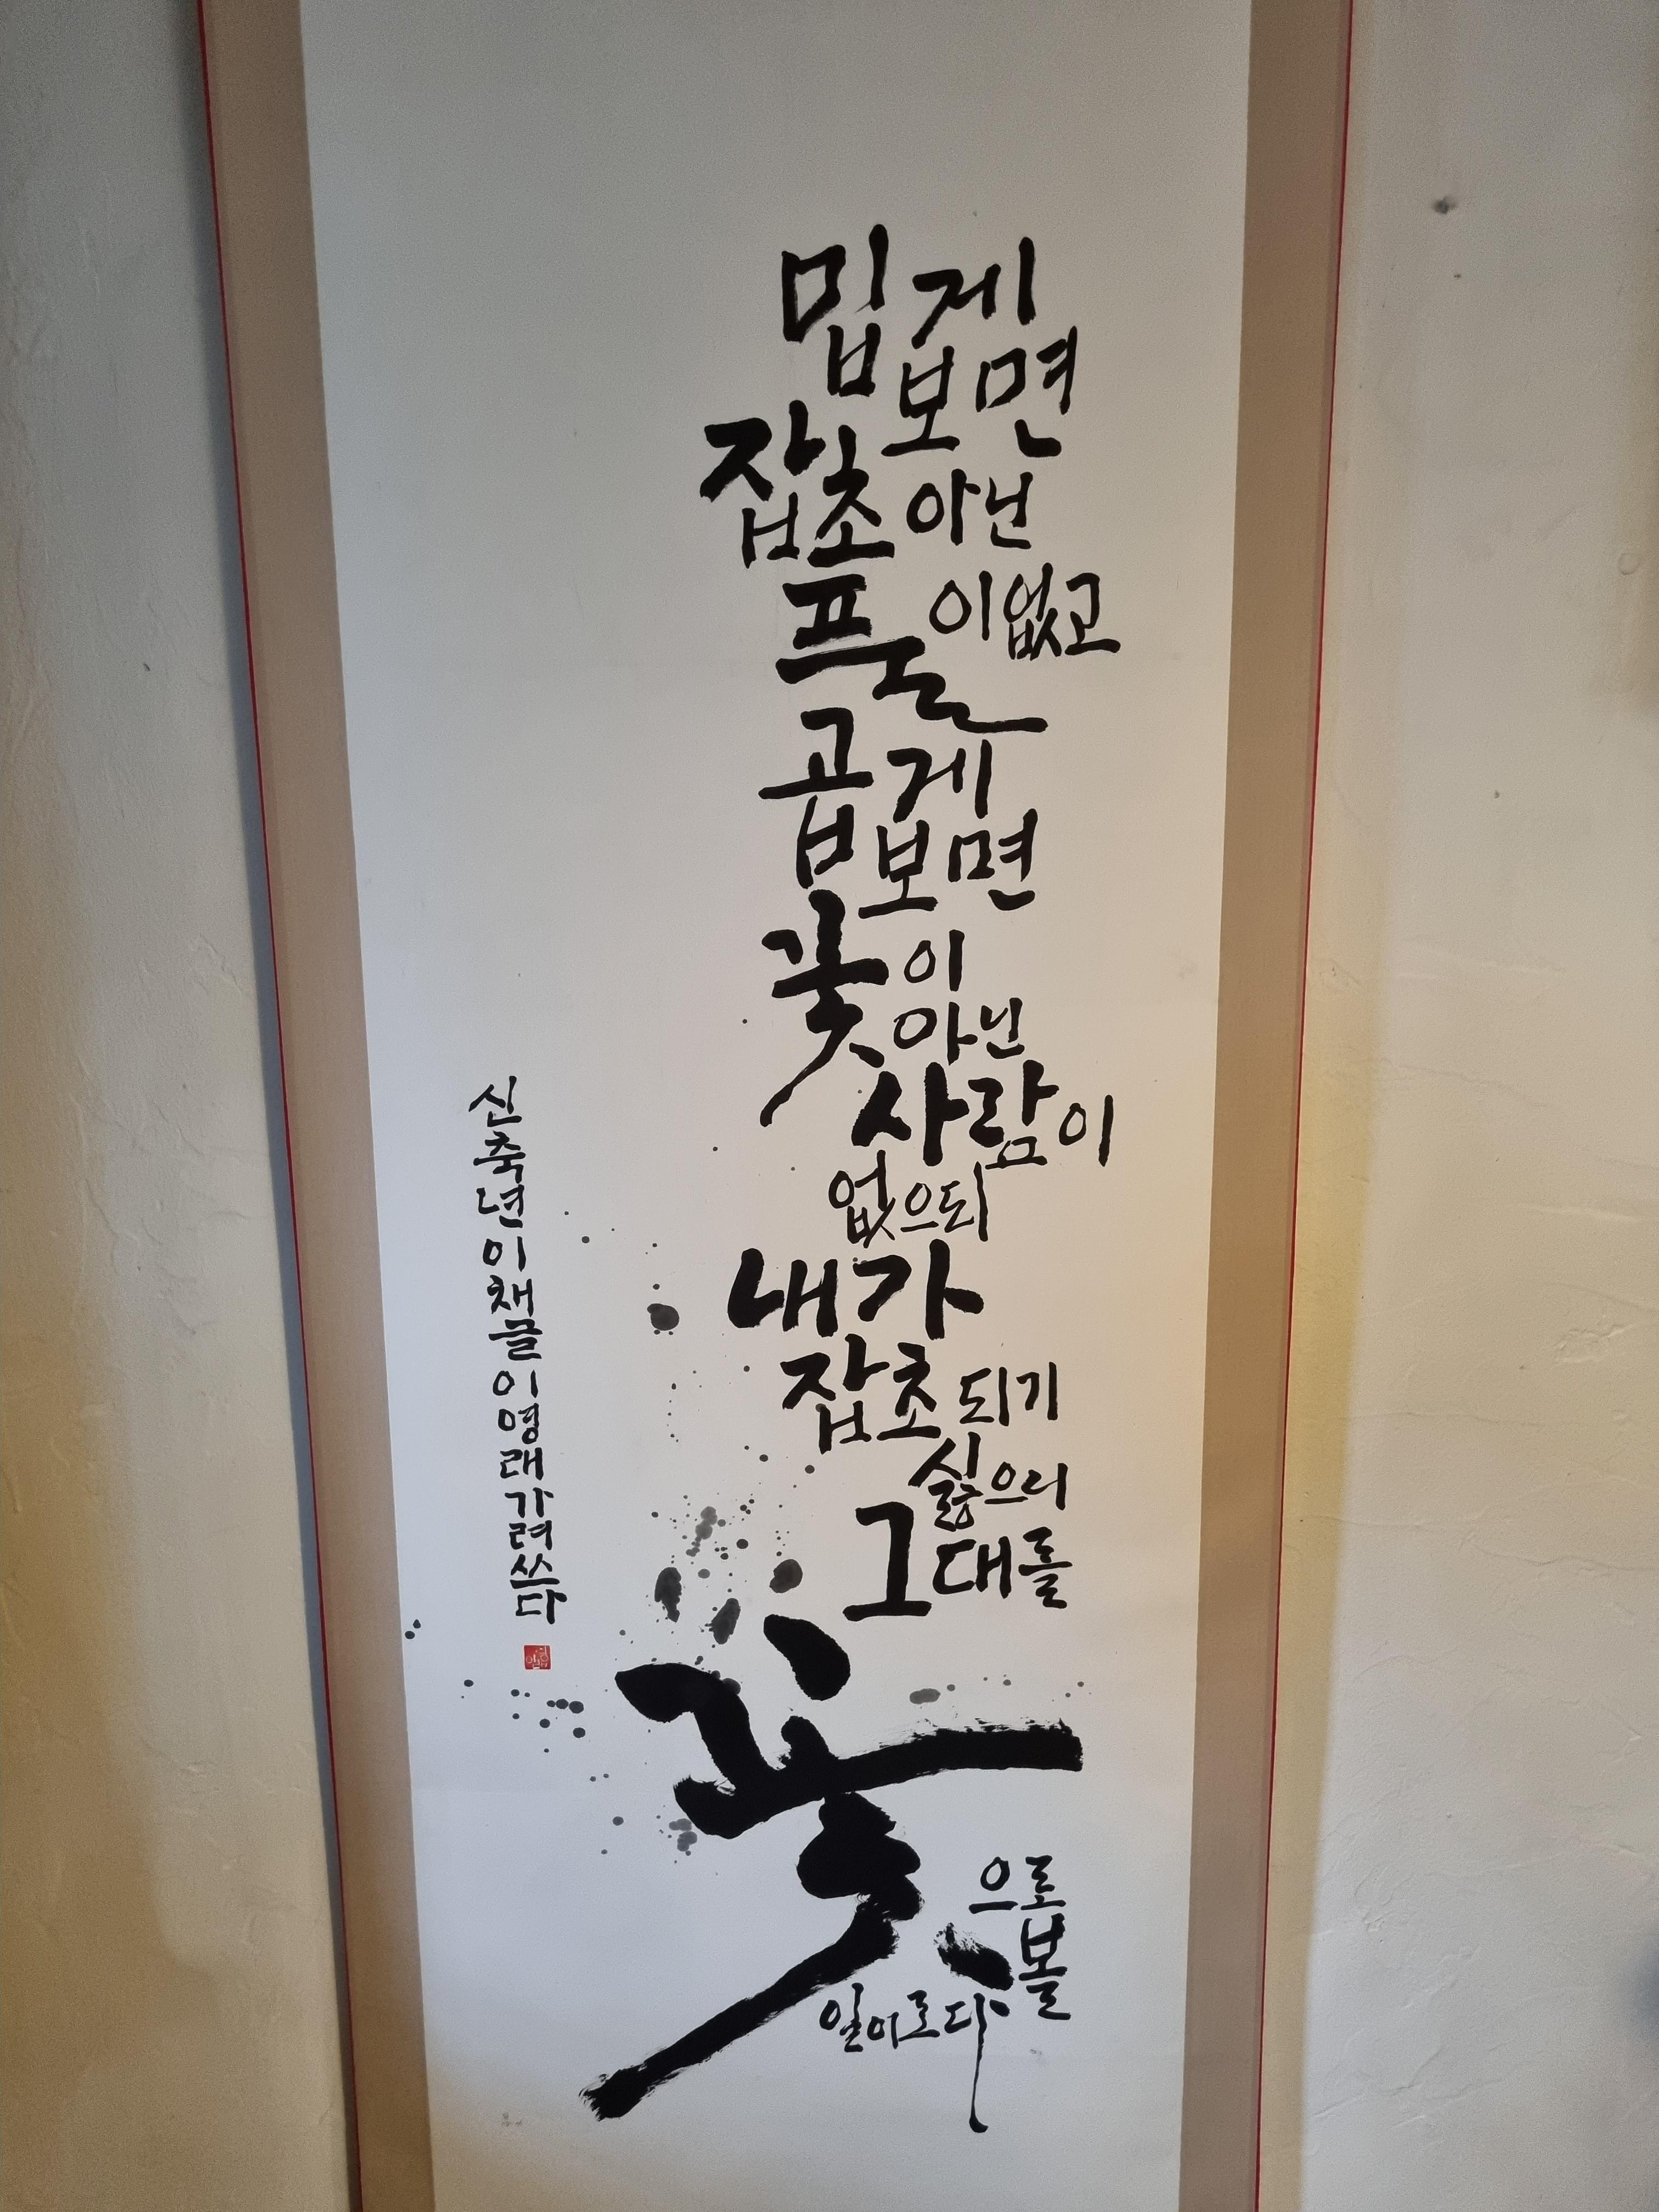 밉게
보면
잡초 아닌
풀이 없고
곱게
보면
꽃이
아닌
사람이
없으되
내가
잡초되기
싫으니
그대를
꽃으로
볼
일이로다
신축년이채글이영래가려쓰다